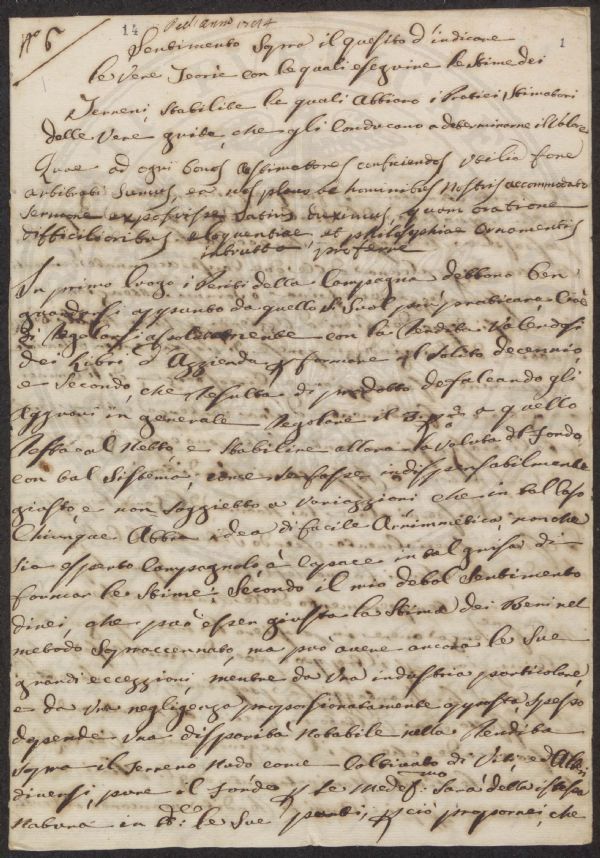 N° 6
14
Pell'anno 1794
1
Sentimento Sopra il quesito d'indicare
le vere Teorie con le quali eseguire le Stime dei
Terreni, Stabilite le quali Abbiano i Pratici Stimatori
delle Vere guide, che gli Conducano a determinarne il Valore
Quae ad ogni bonos Estimatores conficiendos utilia fore
arbitrati Sumus, ea nos plano de hominibus nostris accommodato
Sermone exposuisse Satius duximus, quam oratione
difficilioribus eloquentiae et philosophiae ornamentis
proferre
In primo luogo i Periti della Campagna debbono ben
guardarsi appunto da quello Si Suol per praticare, Cioè
di Regolarsi assolutamente con la Rendita Valendosi
dei Libri d'Azienda formone il Solito decennio,
e Secondo, che Resulta di prodotto defalcando gli
Aggravi in generale Regolare il a quello
Resta al Netto, e Stabilire allora la Valuta del Fondo,
con tal Sistema, come Se fosse indispensabilmente
giusto, e non Soggetto a Variazzioni che in tal Caso
Chiunque Abbia idea di facile Arimmetica, non che
Sia esperto Campagnolo è Capace in tal guisa di
formar le Stime: Secondo il mio debol Sentimento
direi, che può esser giusta la Stima dei Beni nel
metodo Sopraccennato, ma può avere ancora le Sue
grandi eccezzioni, mentre da Una industria particolare,
e da Una negligenza proporzionatamente opposta, Spesso
depende Una disparità Notabile nella Rendita
Sopra il Terreno Nudo come Coltivato di Viti, ed Alberi
diversi, pure il Fondo Le Medesimo Sarà della istessa
Natura in de: le Sue parti, ciò proporrei, che